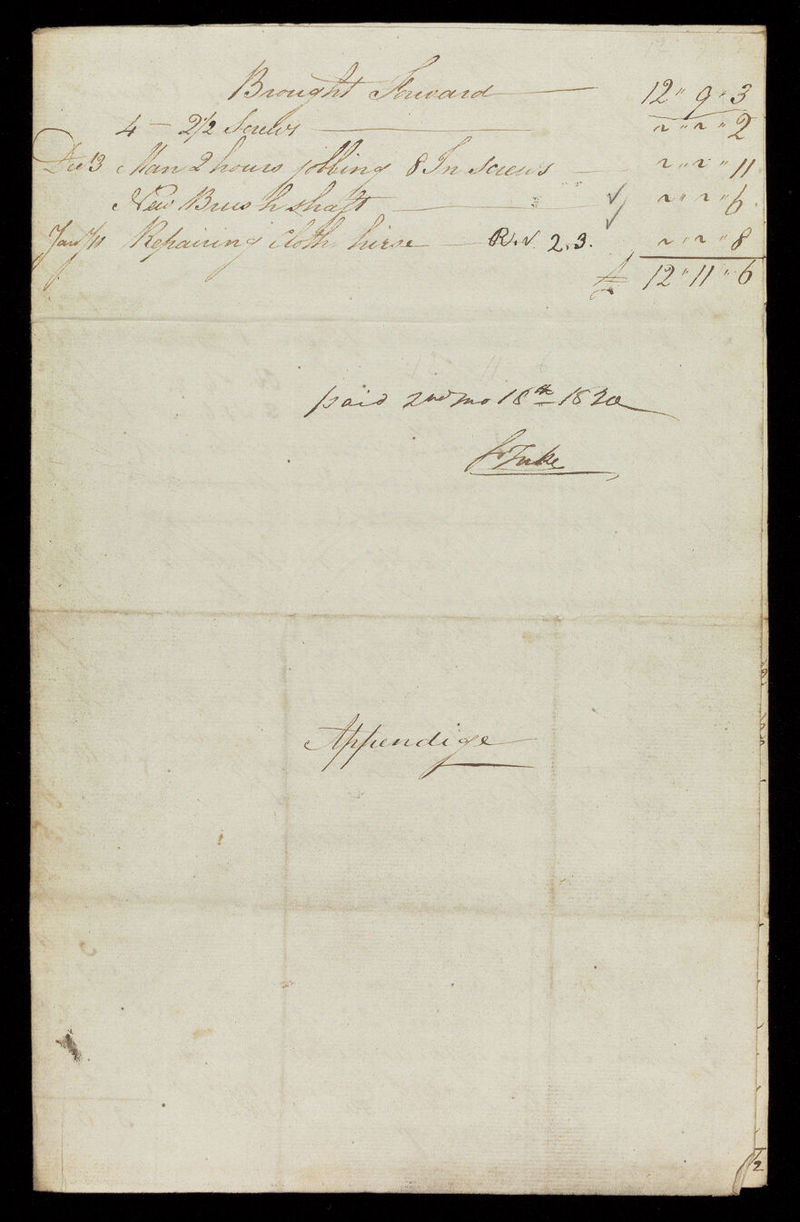 Brought Forward 12 " 9 " 3
4 - 2 1/2 Screws " " " 2
Dec 13 Man 2 hours jobbing 8 In Screws " " " 11
New Brush shaft ✓ " " " 6
Jany 11 Repairing Cloth hirse R.V. 2.3. ✓ " " " 8
£ 12 " 11 " 6
paid 2nd mo 18th 1820
Tuke
Appendige